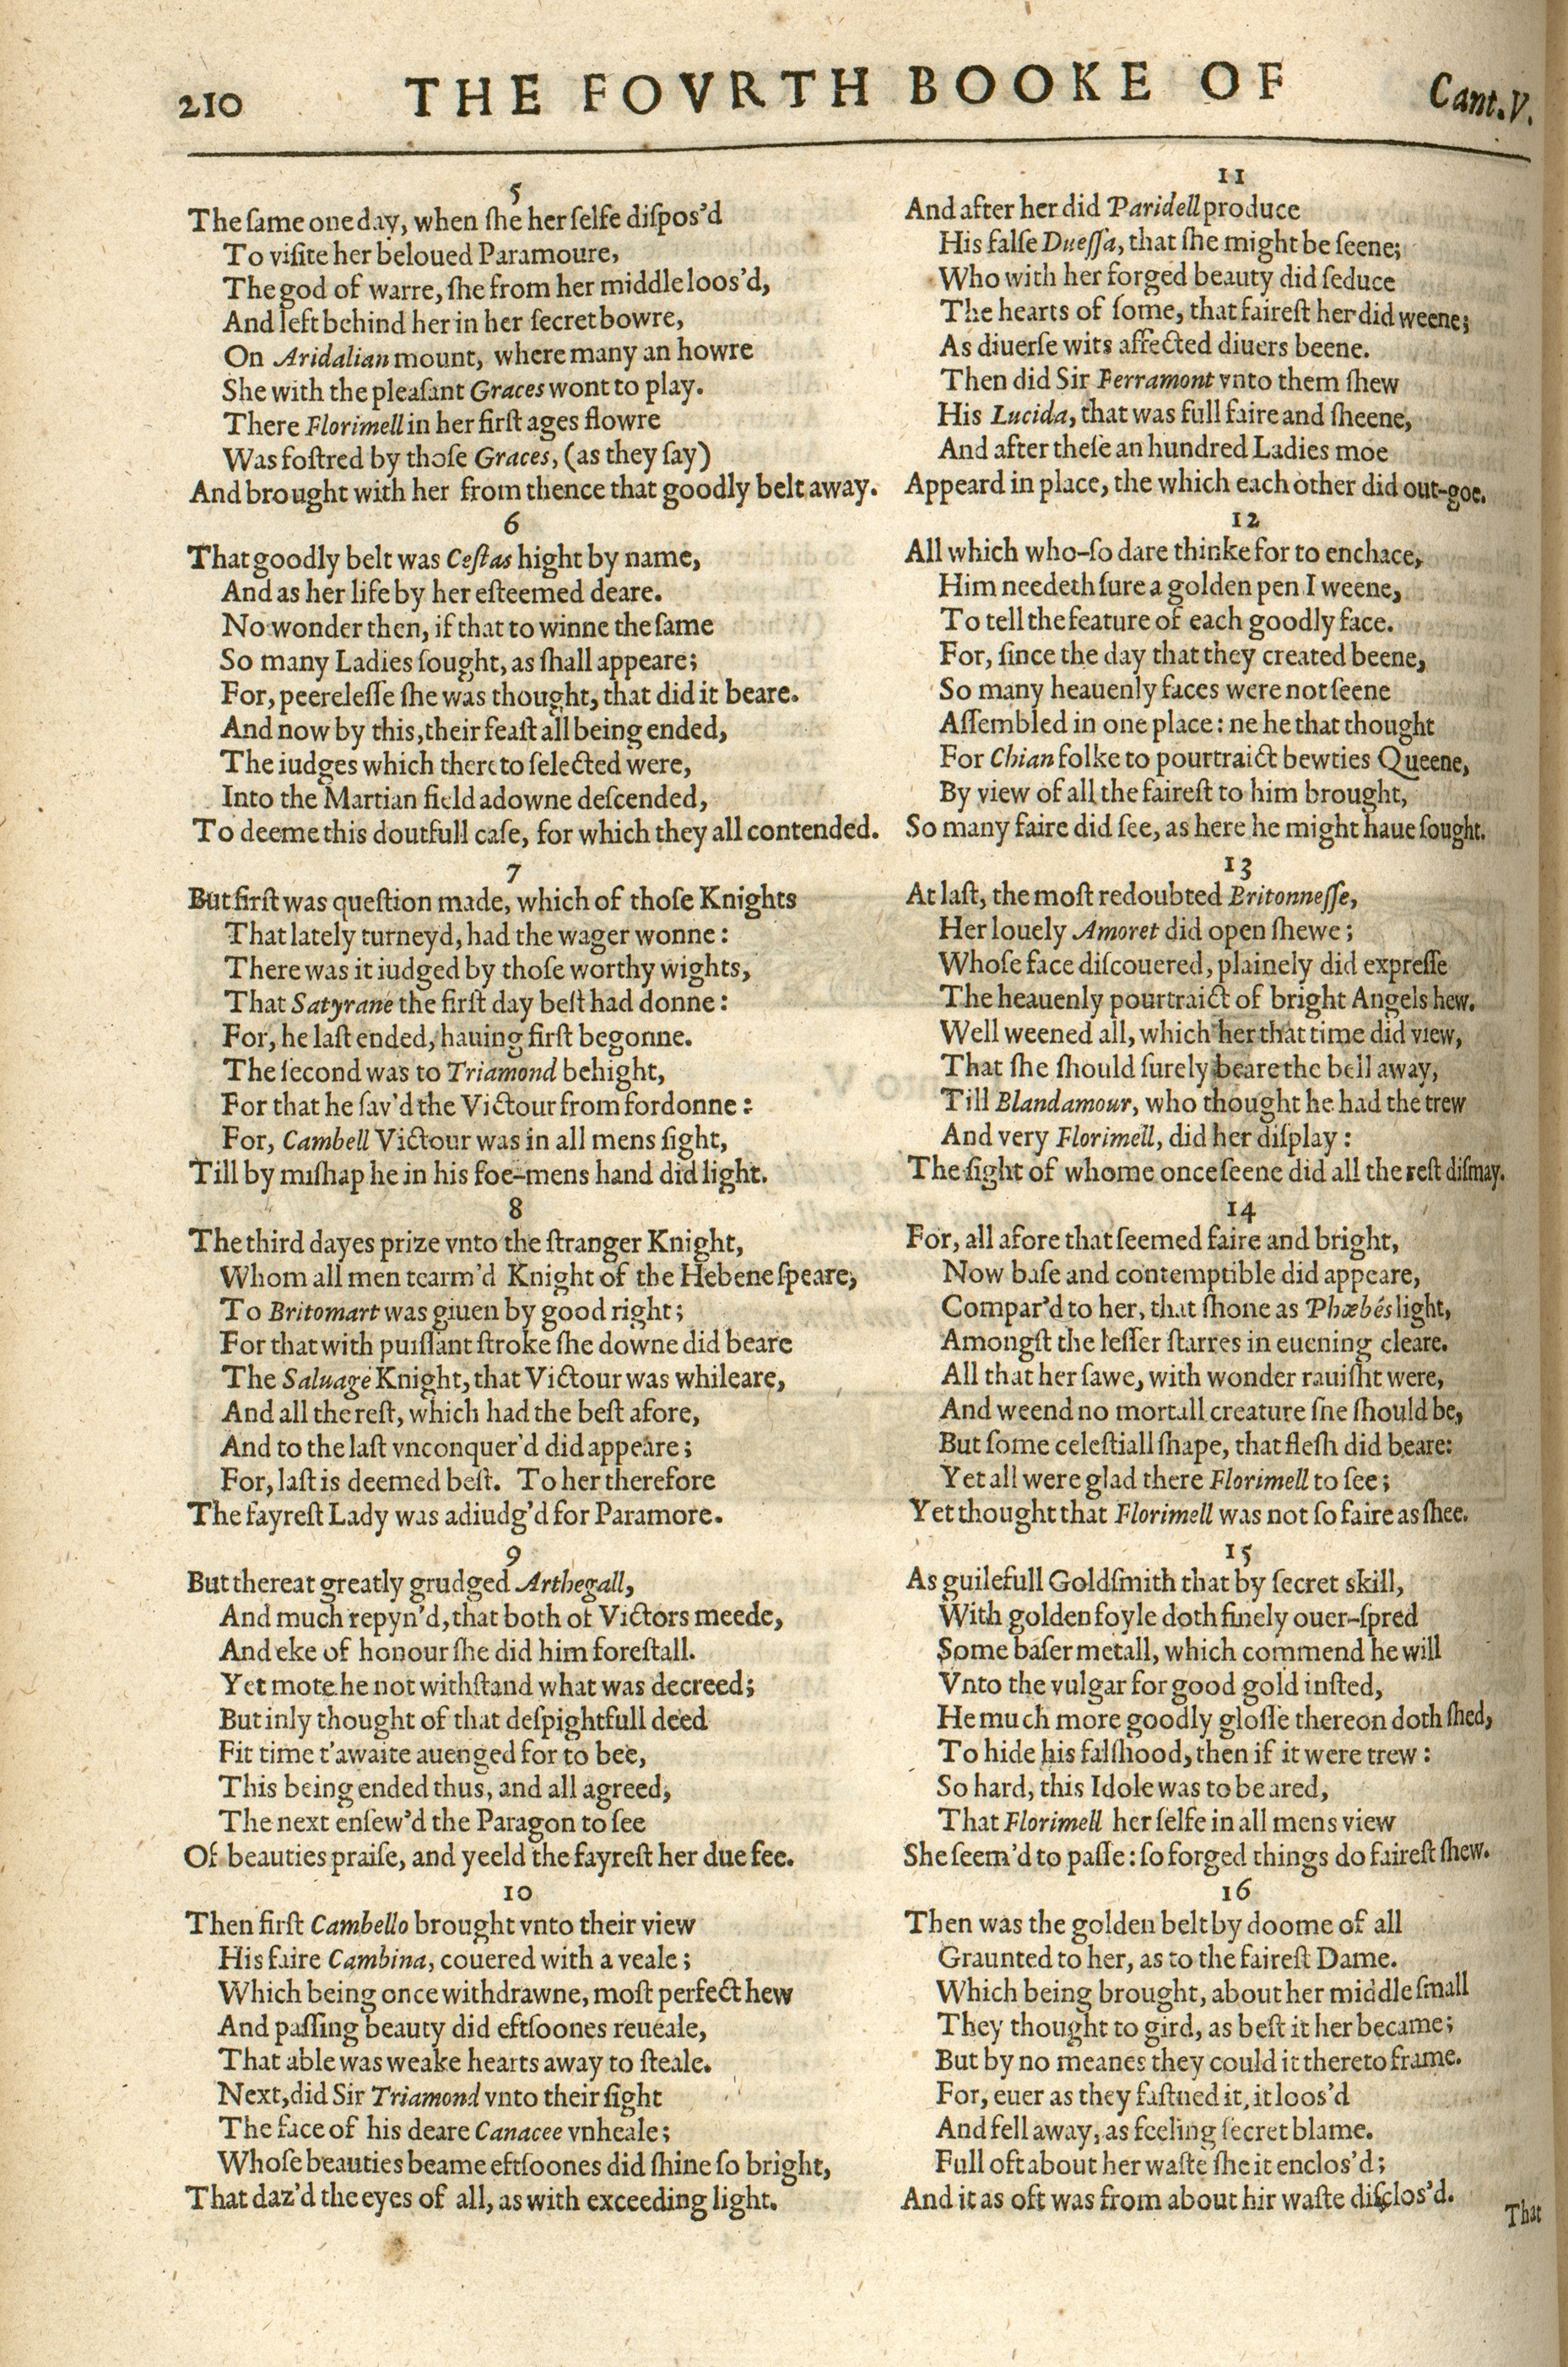 210 THE FOVRTH BOOKE OF Cant.V.
5
The ſame one day, when ſhe her ſelfe diſpos'd
To viſite her beloued Paramoure,
The god of warre, ſhe from her middle loos'd,
And left behind her in her ſecret bowre,
On Aridalian mount, where many an howre
She with the pleaſant Graces wont to play.
There Florimell in her firſt ages flowre
Was foſtred by thoſe Graces, (as they ſay)
And brought with her from thence that goodly belt away.
6
That goodly belt was Ceſtas hight by name,
And as her life by her eſteemed deare.
No wonder then, if that to winne the ſame
So many Ladies ſought, as ſhall appeare;
For, peereleſſe ſhe was thought, that did it beare.
And now by this, their feaſt all being ended,
The iudges which thereto ſelected were,
Into the Martian field adowne deſcended,
To deeme this doutfull caſe, for which they all contended.
7
But firſt was queſtion made, which of thoſe Knights
That lately turneyd, had the wager wonne:
There was it iudged by thoſe worthy wights,
That Satyrane the firſt day beſt had donne:
For, he laſt ended, hauing firſt begonne.
The ſecond was to Triamond behight,
For that he ſav'd the Victour from fordonne:
For, Cambell Victour was in all mens ſight,
Till by miſhap he in his foe-mens hand did light.
8
The third dayes prize vnto the ſtranger Knight,
Whom all men tearm'd Knight of the Hebene ſpeare,
To Britomart was giuen by good right;
For that with puiſſant ſtroke ſhe downe did beare
The Saluage Knight, that Victour was whileare,
And all the reſt, which had the beſt afore,
And to the laſt vnconquer'd did appeare;
For, laſt is deemed beſt. To her therefore
The fayreſt Lady was adiudg'd for Paramore.
9
But thereat greatly grudged Arthegall,
And much repyn'd, that both of Victors meede,
And eke of honour ſhe did him foreſtall.
Yet mote he not withſtand what was decreed;
But inly thought of that deſpightfull deed
Fit time t'awaite auenged for to bee,
This being ended thus, and all agreed,
The next enſew'd the Paragon to ſee
Of beauties praiſe, and yeeld the fayreſt her due fee.
10
Then firſt Cambello brought vnto their view
His faire Cambina, couered with a veale;
Which being once withdrawne, moſt perfect hew
And paſſing beauty did eftſoones reueale,
That able was weake hearts away to ſteale.
Next, did Sir Triamond vnto their ſight
The face of his deare Canacee vnheale;
Whoſe beauties beame eftſoones did ſhine ſo bright,
That daz'd the eyes of all, as with exceeding light.
11
And after her did Paridell produce
His falſe Dueſſa, that ſhe might be ſeene;
Who with her forged beauty did ſeduce
The hearts of ſome, that faireſt her did weene;
As diuerſe wits affected diuers beene.
Then did Sir Ferramont vnto them ſhew
His Lucida, that was full faire and ſheene,
And after theſe an hundred Ladies moe
Appeard in place, the which each other did out-goe.
12
All which who-ſo dare thinke for to enchace,
Him needeth ſure a golden pen I weene,
To tell the feature of each goodly face.
For, ſince the day that they created beene,
So many heauenly faces were not ſeene
Aſſembled in one place: ne he that thought
For Chian folke to pourtraict bewties Queene,
By view of all the faireſt to him brought,
So many faire did ſee, as here he might haue ſought.
13
At laſt, the moſt redoubted Britonneſſe,
Her louely Amoret did open ſhewe;
Whoſe face diſcouered, plainely did expreſſe
The heauenly pourtraict of bright Angels hew.
Well weened all, which her that time did view,
That ſhe ſhould ſurely beare the bell away,
Till Blandamour, who thought he had the trew
And very Florimell, did her diſplay:
The ſight of whome once ſeene did all the reſt diſmay.
14
For, all afore that ſeemed faire and bright,
Now baſe and contemptible did appeare,
Compar'd to her, that ſhone as Phœbés light,
Amongſt the leſſer ſtarres in euening cleare.
All that her ſawe, with wonder rauiſht were,
And weend no mortall creature ſhe ſhould be,
But ſome celeſtiall ſhape, that fleſh did beare:
Yet all were glad there Florimell to ſee;
Yet thought that Florimell was not ſo faire as ſhee.
15
As guilefull Goldſmith that by ſecret skill,
With golden foyle doth finely ouer-ſpred
Some baſer metall, which commend he will
Vnto the vulgar for good gold inſted,
He much more goodly gloſſe thereon doth ſhed,
To hide his falſhood, then if it were trew:
So hard, this Idole was to be ared,
That Florimell her ſelfe in all mens view
She ſeem'd to paſſe: ſo forged things do faireſt ſhew.
16
Then was the golden belt by doome of all
Graunted to her, as to the faireſt Dame.
Which being brought, about her middle ſmall
They thought to gird, as beſt it her became;
But by no meanes they could it thereto frame.
For, euer as they faſtned it, it loos'd
And fell away, as feeling ſecret blame.
Full oft about her waſte ſhe it enclos'd;
And it as oft was from about hir waſte diſclos'd.
That